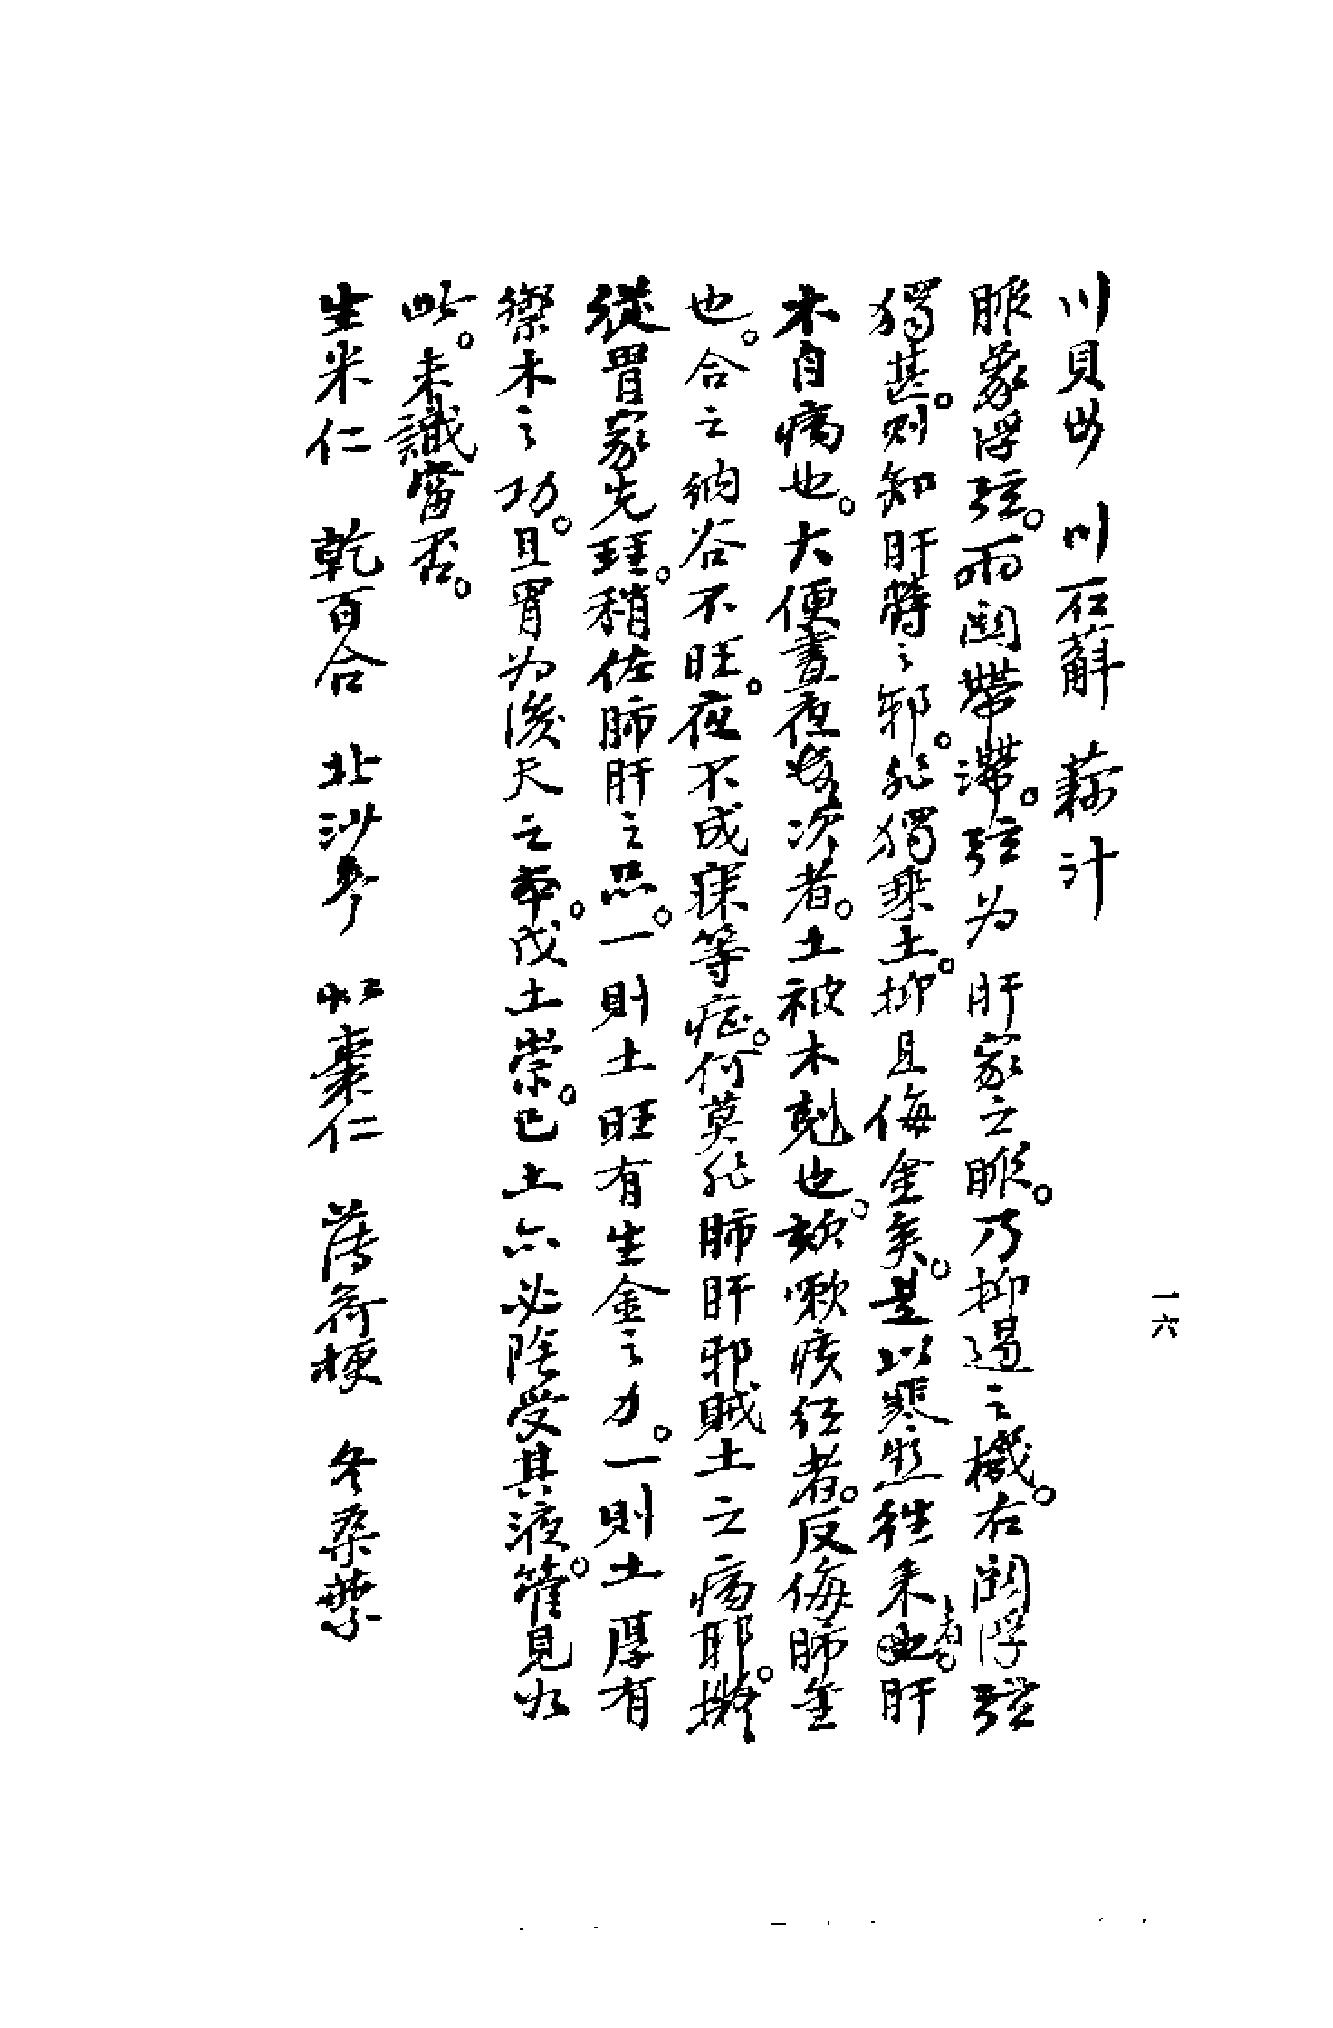 川貝母　川石斛　藕汁
脈象浮弦。兩関帶滯。弦为肝家之脈。乃抑遏之機。右関浮弦
獨甚。则知肝臟之邪。非獨乘土。抑且侮金矣。是以寒熱往来者。肝
木自病也。大便晝夜多次者。土被木剋也。咳嗽痰红者。反侮肺金
也。合之納谷不旺。夜不成寐等症。何莫非肺肝邪賊土之病耶。擬
從胃家先理。稍佐肺肝之品。一則土旺有生金之力。一則土厚有
禦木之功。且胃为後天之本。戊土崇。巳土亦必陰受其液。管見如
此。未識當否。
生米仁　乾百合　北沙參　杜棗仁　薄荷梗　冬桑葉
一六